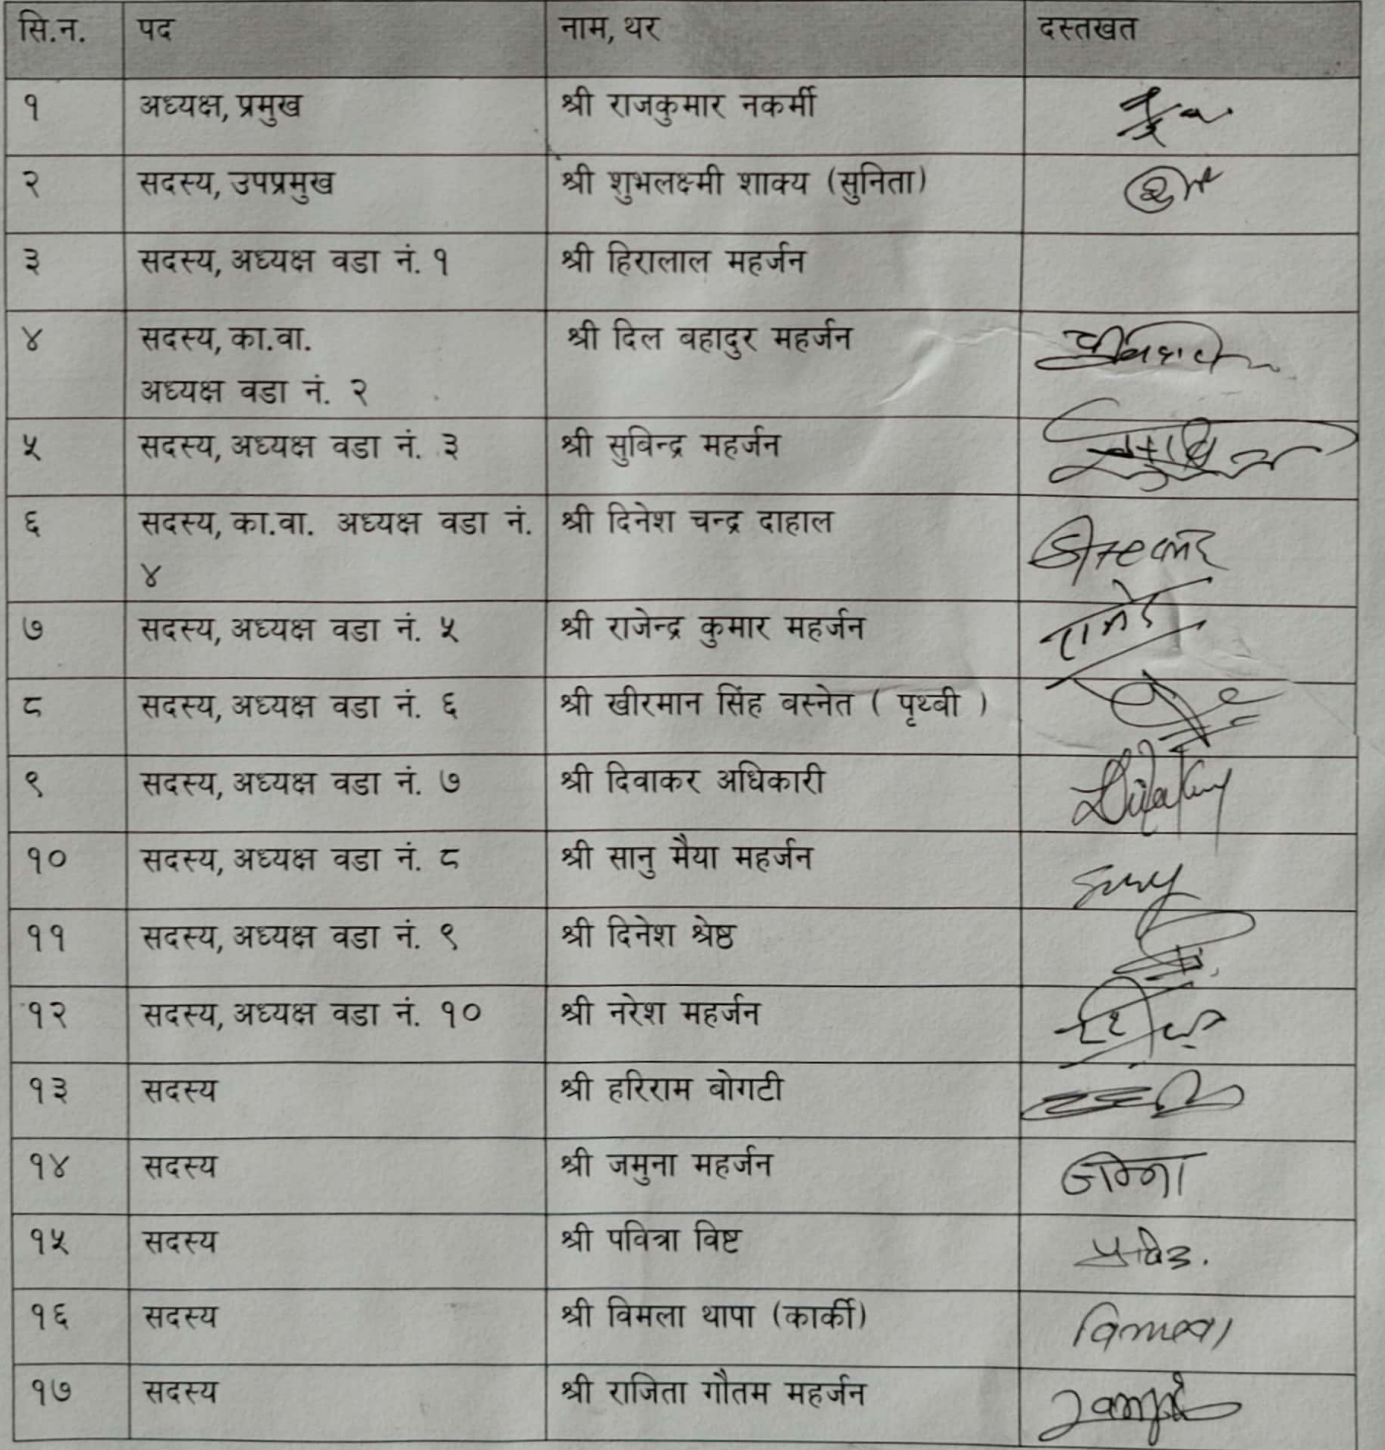 सि.न. पद नाम, थर दस्तखत
१ अध्यक्ष, प्रमुख श्री राजकुमार नकर्मी
२ सदस्य, उपप्रमुख श्री शुभलक्ष्मी शाक्य (सुनिता)
३ सदस्य, अध्यक्ष वडा नं. १ श्री हिरालाल महर्जन
४ सदस्य, का.वा. श्री दिल बहादुर महर्जन
अध्यक्ष वडा नं. २
५ सदस्य, अध्यक्ष वडा नं. ३ श्री सुविन्द्र महर्जन
६ सदस्य, का.वा. अध्यक्ष वडा नं. श्री दिनेश चन्द्र दाहाल
४
७ सदस्य, अध्यक्ष वडा नं. ५ श्री राजेन्द्र कुमार महर्जन
८ सदस्य, अध्यक्ष वडा नं. ६ श्री खीरमान सिंह बस्नेत ( पृथ्वी )
९ सदस्य, अध्यक्ष वडा नं. ७ श्री दिवाकर अधिकारी
१० सदस्य, अध्यक्ष वडा नं. ८ श्री सानु मैया महर्जन
११ सदस्य, अध्यक्ष वडा नं. ९ श्री दिनेश श्रेष्ठ
१२ सदस्य, अध्यक्ष वडा नं. १० श्री नरेश महर्जन
१३ सदस्य श्री हरिराम बोगटी
१४ सदस्य श्री जमुना महर्जन
१५ सदस्य श्री पवित्रा विष्ट
१६ सदस्य श्री विमला थापा (कार्की)
१७ सदस्य श्री राजिता गौतम महर्जन